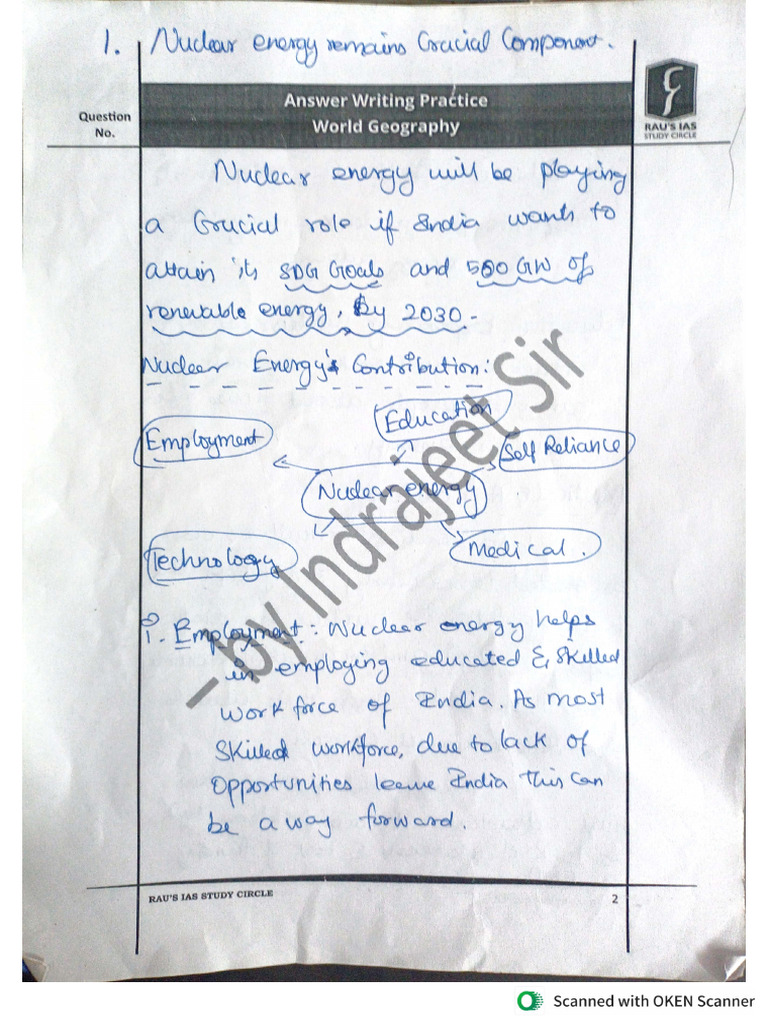 1. Nuclear energy remains Crucial Component.
Question
No.
Answer Writing Practice
World Geography
RAU'S IAS
STUDY CIRCLE
Nuclear energy will be playing
a Crucial role if India wants to
attain its SDG Goals and 500 GW of
renewable energy, By 2030.
Nuclear Energy's Contribution:
Education
Employment
Self Reliance
Nuclear energy
Technology
Medical.
- by Indrajeet Sir
i. Employment: Nuclear energy helps
in employing educated & skilled
workforce of India. As most
skilled workforce, due to lack of
opportunities leave India this can
be a way forward.
RAU'S IAS STUDY CIRCLE
2
Scanned with OKEN Scanner